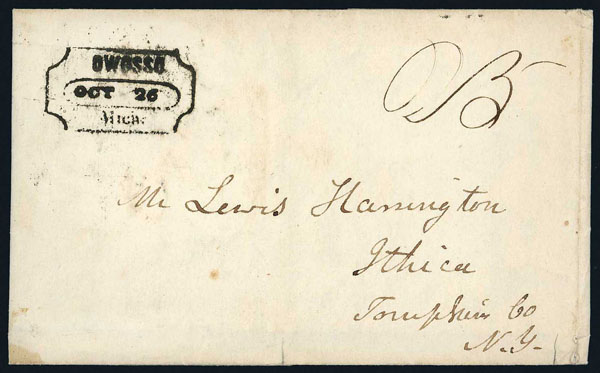 OWOSSO
OCT 26
Mich.
Mr Lewis Harrington
Ithica
Tompkins Co
N.Y.